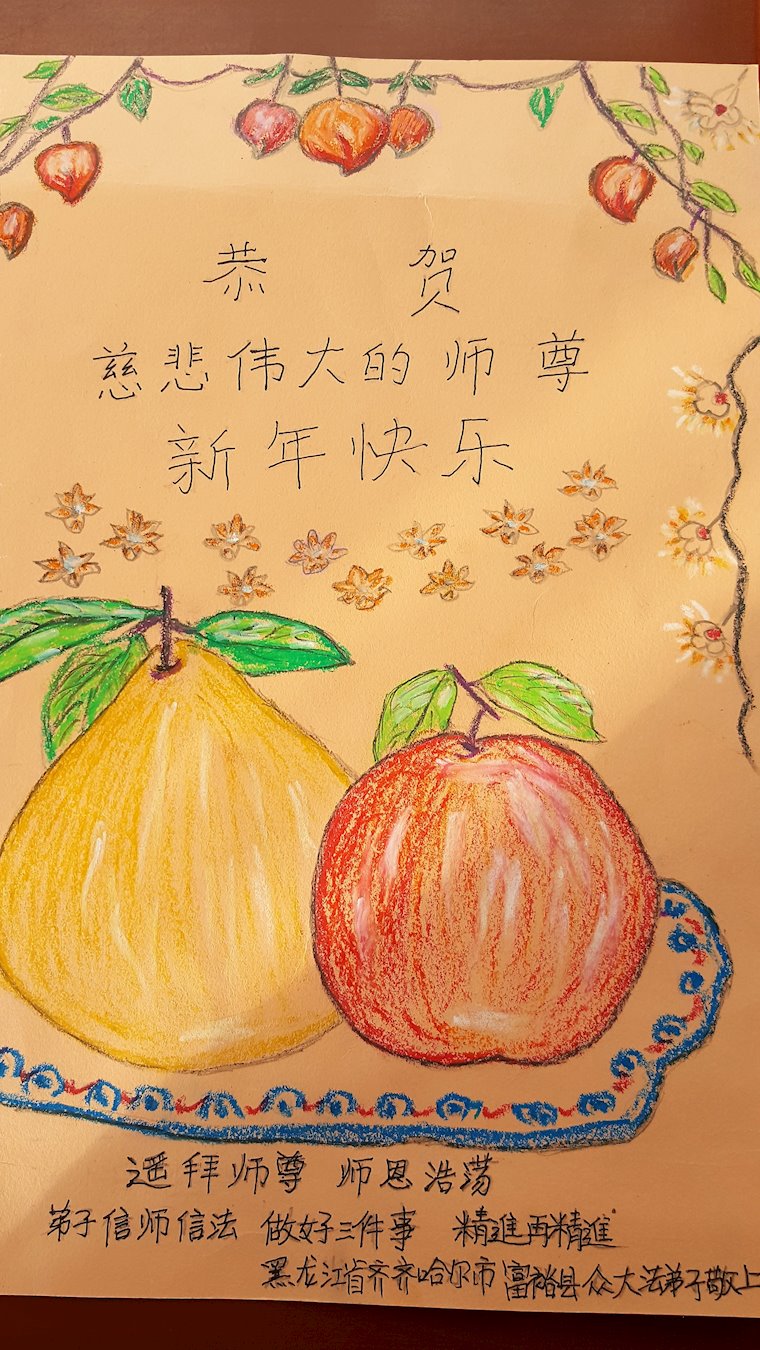 恭 贺
慈悲伟大的师尊
新年快乐
遥拜师尊 师恩浩荡
弟子信师信法 做好三件事 精進再精進
黑龙江省齐齐哈尔市富裕县众大法弟子敬上